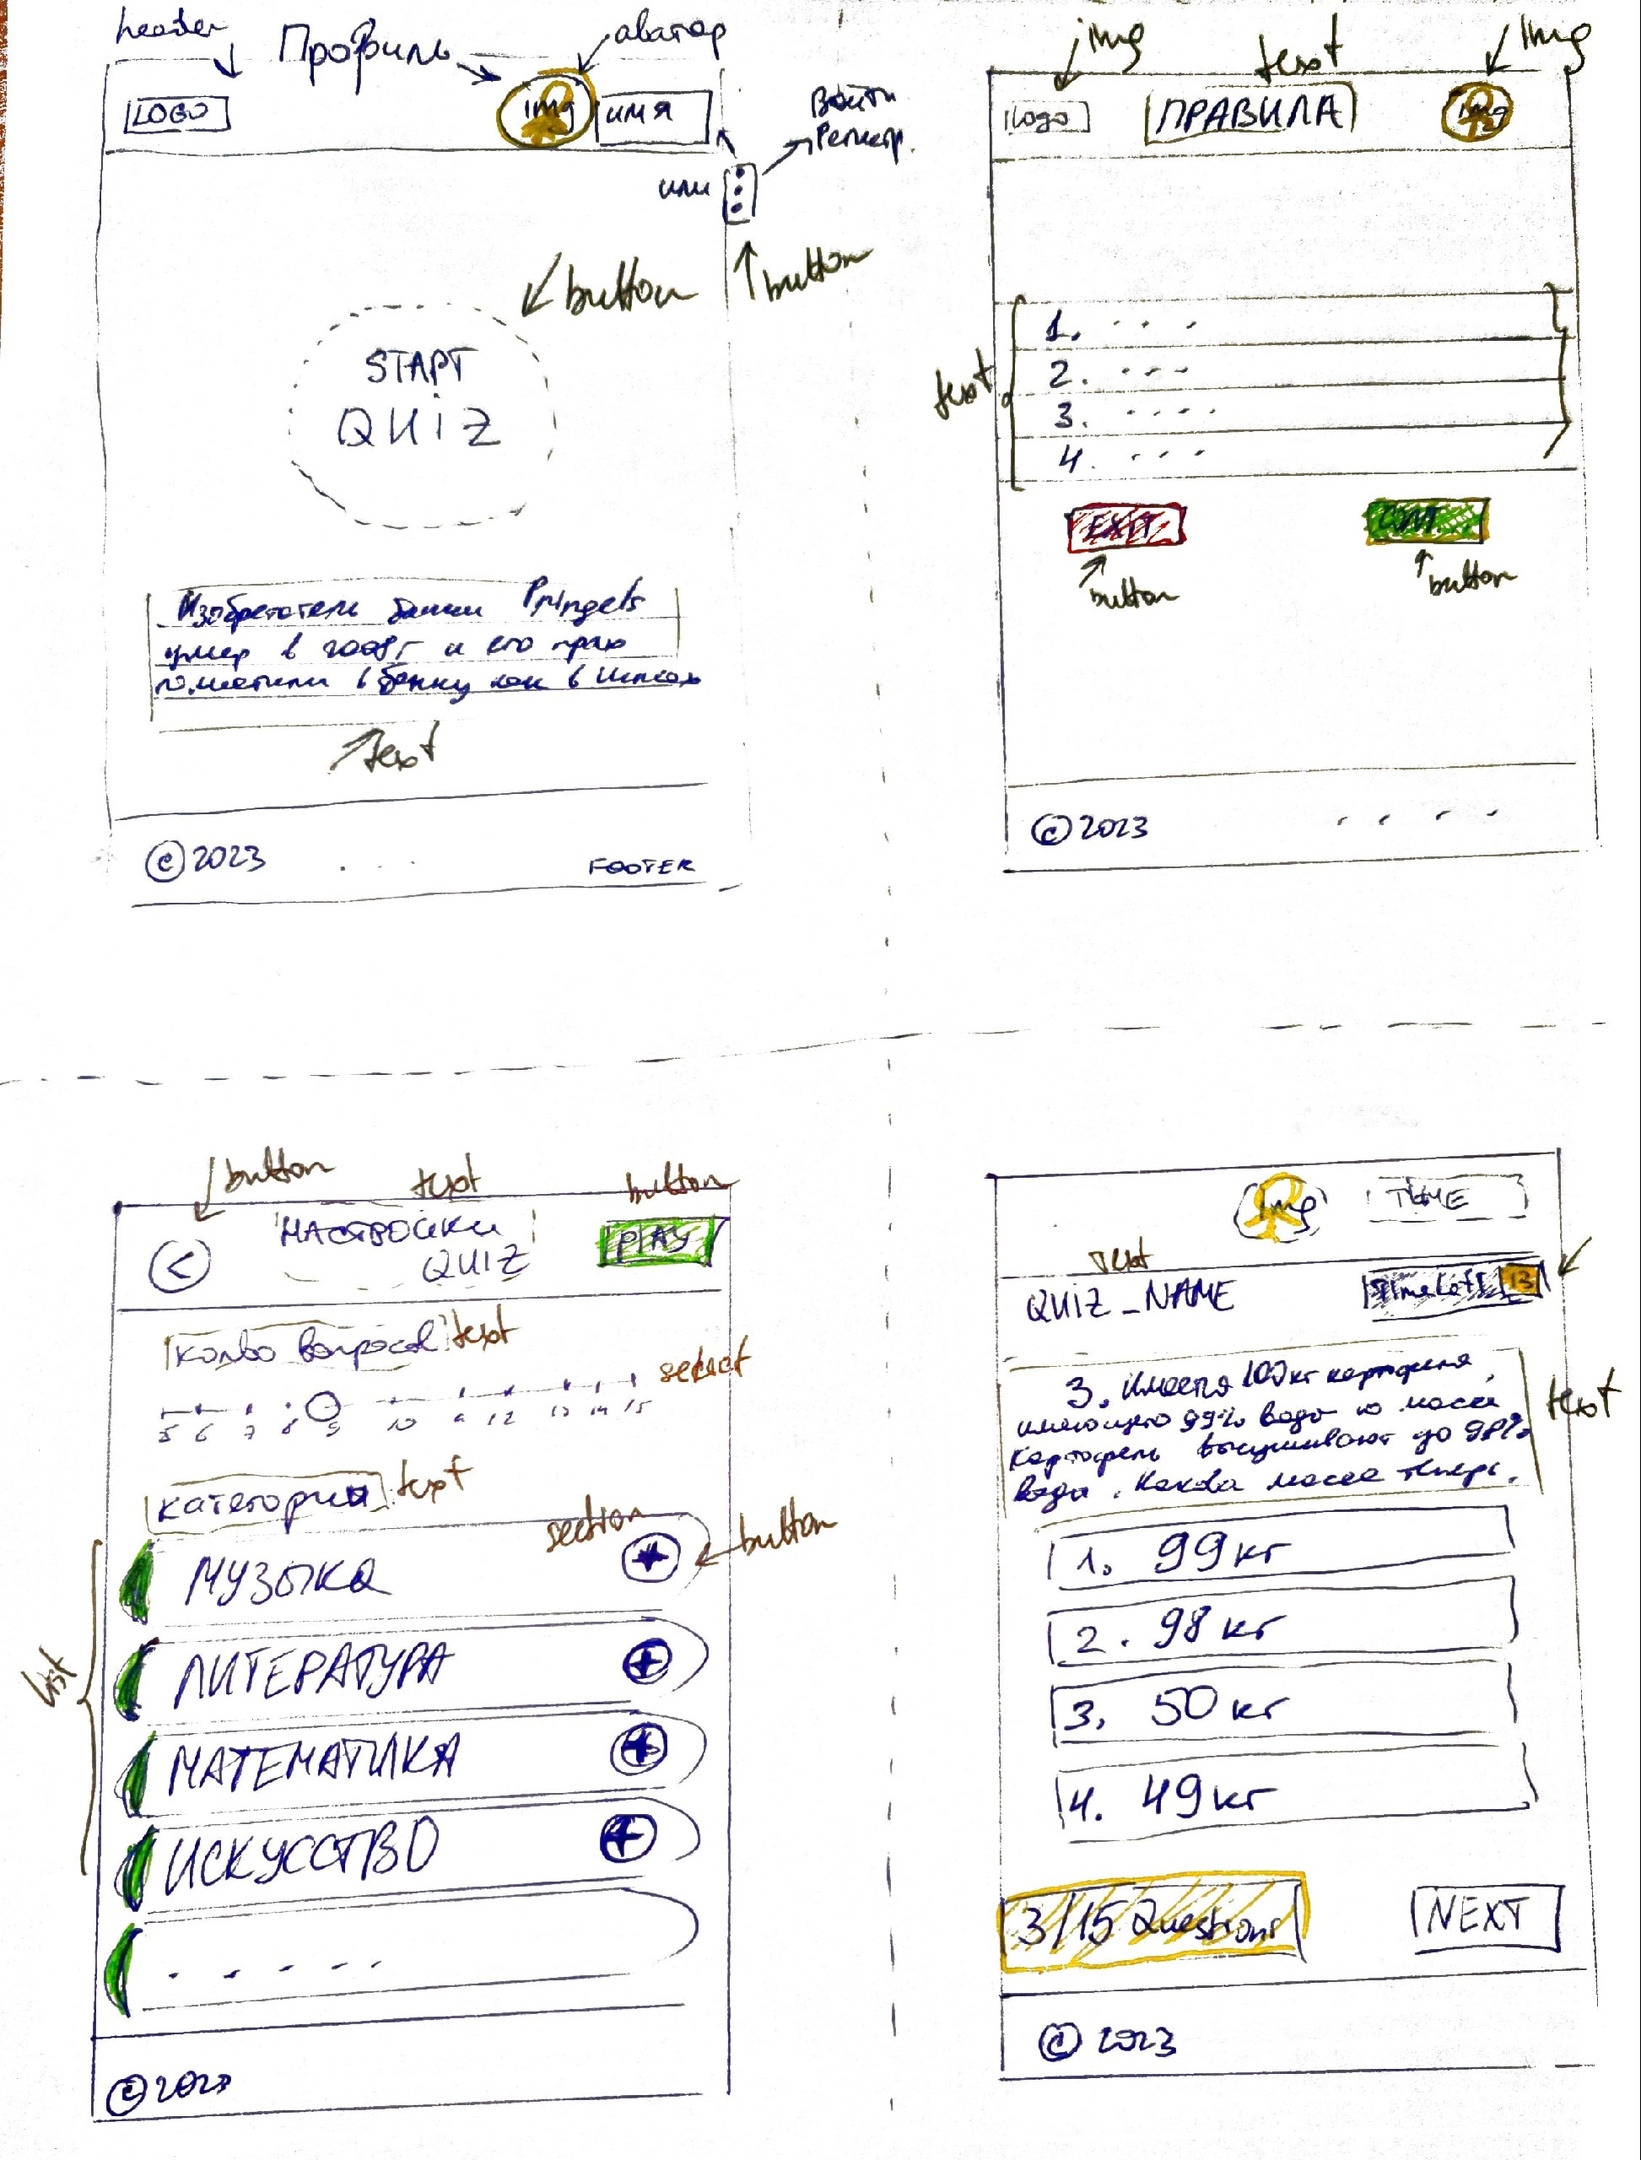 header
Профиль
аватар
LOGO
img
имя
Войти
Регистр.
или
button
button
START
QUIZ
Изобретатель банки Pringels
умер в 2008г и его прах
поместили в банку как в
text
© 2023 . . .
FOOTER
img
text
img
logo
ПРАВИЛА
img
text
1. . . .
2. . . .
3. . . . .
4. . . .
EXIT
CONT
button
button
© 2023 . . . .
button
text
button
<
НАСТРОЙКИ
QUIZ
PLAY
кол-во вопросов
text
select
5 6 7 8 9 10 12 13 14 15
категории
text
section
button
list
МУЗЫКА +
ЛИТЕРАТУРА +
МАТЕМАТИКА +
ИСКУССТВО +
. . . . .
© 2023
img
text
QUIZ_NAME
Time Left 13
3. Имеется 100кг картофеля,
имеющего 99% воды по массе
Картофель высушивают до 98%
воды. Какова масса теперь.
text
1. 99 кг
2. 98 кг
3. 50 кг
4. 49 кг
3/15 Questions
NEXT
© 2023